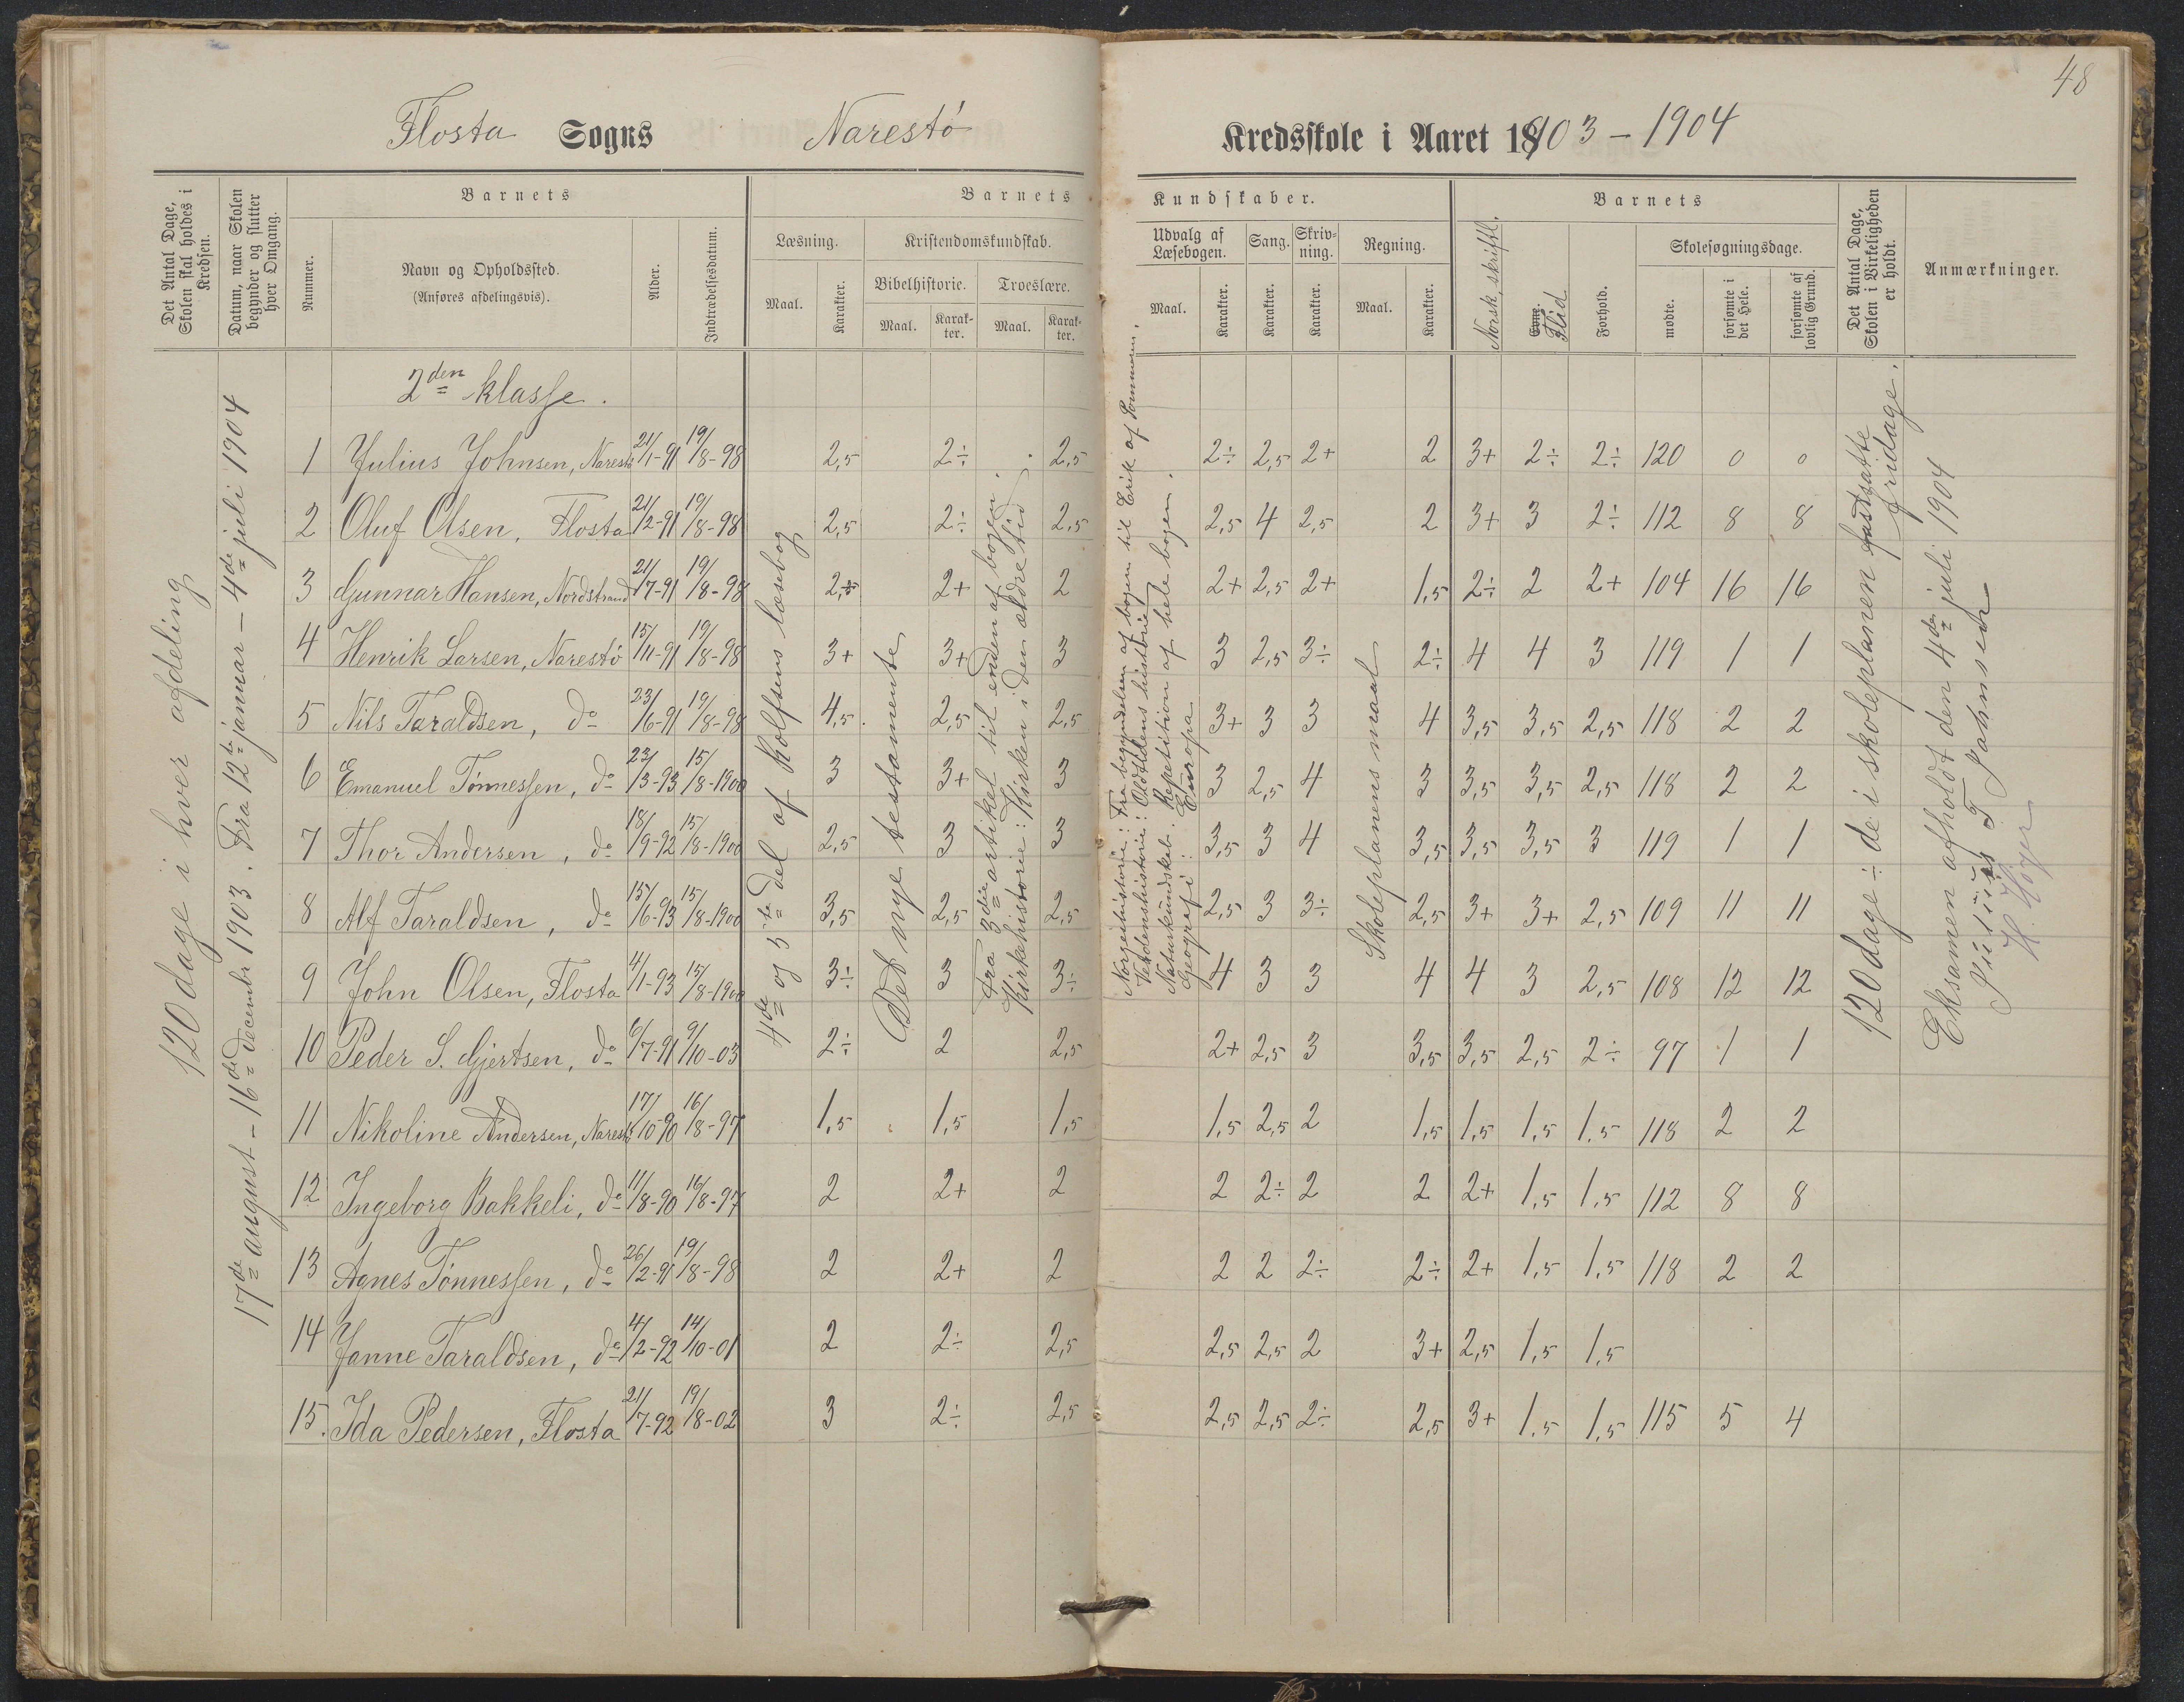 48
Flosta Sogns Narestö Kredsskole i Aaret 1903-1904
Det Antal Dage, Skolen skal holdes i Kredsen.
Datum, naar Skolen begynder og slutter hver Omgang.
Nummer.
Barnets
Navn og Opholdssted.
(Anføres afdelingsvis).
Alder.
Indtrædelsesdatum.
Barnets Kundskaber.
Læsning.
Maal.
Karakter.
Kristendomskundskab.
Bibelhistorie.
Maal.
Karakter.
Troeslære.
Maal.
Karakter.
Udvalg af Læsebogen.
Maal.
Karakter.
Sang.
Karakter.
Skrivning.
Karakter.
Regning.
Maal.
Karakter.
Barnets
Norsk, skriftl.
Evne.
Flid
Forhold.
Skolesøgningsdage.
mødte.
forsømte i det Hele.
forsømte af lovlig Grund.
Det Antal Dage, Skolen i Virkeligheden er holdt.
Anmærkninger.
120 dage i hver afdeling
17de august - 16de decembr 1903. Fra 12te januar - 4de juli 1904
4de og 5te del af Rolfsens læsebog
Det nye testamente
Fra 3die artikel til enden af bogen.
Kirkehistorie: Kirken i den ældre tid
Norgeshistorie: Fra begyndelsen af bogen til Erik af Pommern.
Verdenshistorie: Oldtidens historie
Naturkundskab: Repetition af hele bogen.
Geografi: Europa
Skoleplanens maal
120 dage ÷ de i skoleplanen fastsatte fridage.
Eksamen afholdt den 4de juli 1904
Julius T Jahnsen
H. Höyer
2den klasse.
1 Julius Johnsen, Narestö 21/1-91 19/8-98 2,5 2÷ 2,5 2÷ 2,5 2+ 2 3+ 2÷ 2÷ 120 0 0
2 Oluf Olsen, Flosta 21/2-91 19/8-98 2,5 2÷ 2,5 2,5 4 2,5 2 3+ 3 2÷ 112 8 8
3 Gunnar Hansen, Nordstrand 21/7-91 19/8-98 2,5 2+ 2 2+ 2,5 2+ 1,5 2÷ 2 2+ 104 16 16
4 Henrik Larsen, Narestö 15/11-91 19/8-98 3+ 3+ 3 3 2,5 3÷ 2÷ 4 4 3 119 1 1
5 Nils Taraldsen, do 23/6-91 19/8-98 4,5 2,5 2,5 3+ 3 3 4 3,5 3,5 2,5 118 2 2
6 Emanuel Tönnessen, do 23/3-93 15/8-1900 3 3+ 3 3 2,5 4 3 3,5 3,5 2,5 118 2 2
7 Thor Andersen, do 18/9-92 15/8-1900 2,5 3 3 3,5 3 4 3,5 3,5 3,5 3 119 1 1
8 Alf Taraldsen, do 15/6-93 15/8-1900 3,5 2,5 2,5 2,5 3 3÷ 2,5 3+ 3+ 2,5 109 11 11
9 John Olsen, Flosta 4/1-93 15/8-1900 3÷ 3 3÷ 4 3 3 4 4 3 2,5 108 12 12
10 Peder S. Gjertsen, do 6/7-91 9/10-03 2÷ 2 2,5 2+ 2,5 3 3,5 3,5 2,5 2÷ 97 1 1
11 Nikoline Andersen, Narestö 17/10-90 16/8-97 1,5 1,5 1,5 1,5 2,5 2 1,5 1,5 1,5 1,5 118 2 2
12 Ingeborg Bakkeli, do 11/8-90 16/8-97 2 2+ 2 2 2÷ 2 2 2+ 1,5 1,5 112 8 8
13 Agnes Tönnessen, do 26/2-91 19/8-98 2 2+ 2 2 2 2÷ 2÷ 2+ 1,5 1,5 118 2 2
14 Janne Taraldsen, do 4/2-92 14/10-01 2 2÷ 2,5 2,5 2,5 2 3+ 2,5 1,5 1,5
15. Ida Pedersen, Flosta 21/7-92 19/8-02 3 2÷ 2,5 2,5 2,5 2÷ 2,5 3+ 1,5 1,5 115 5 4